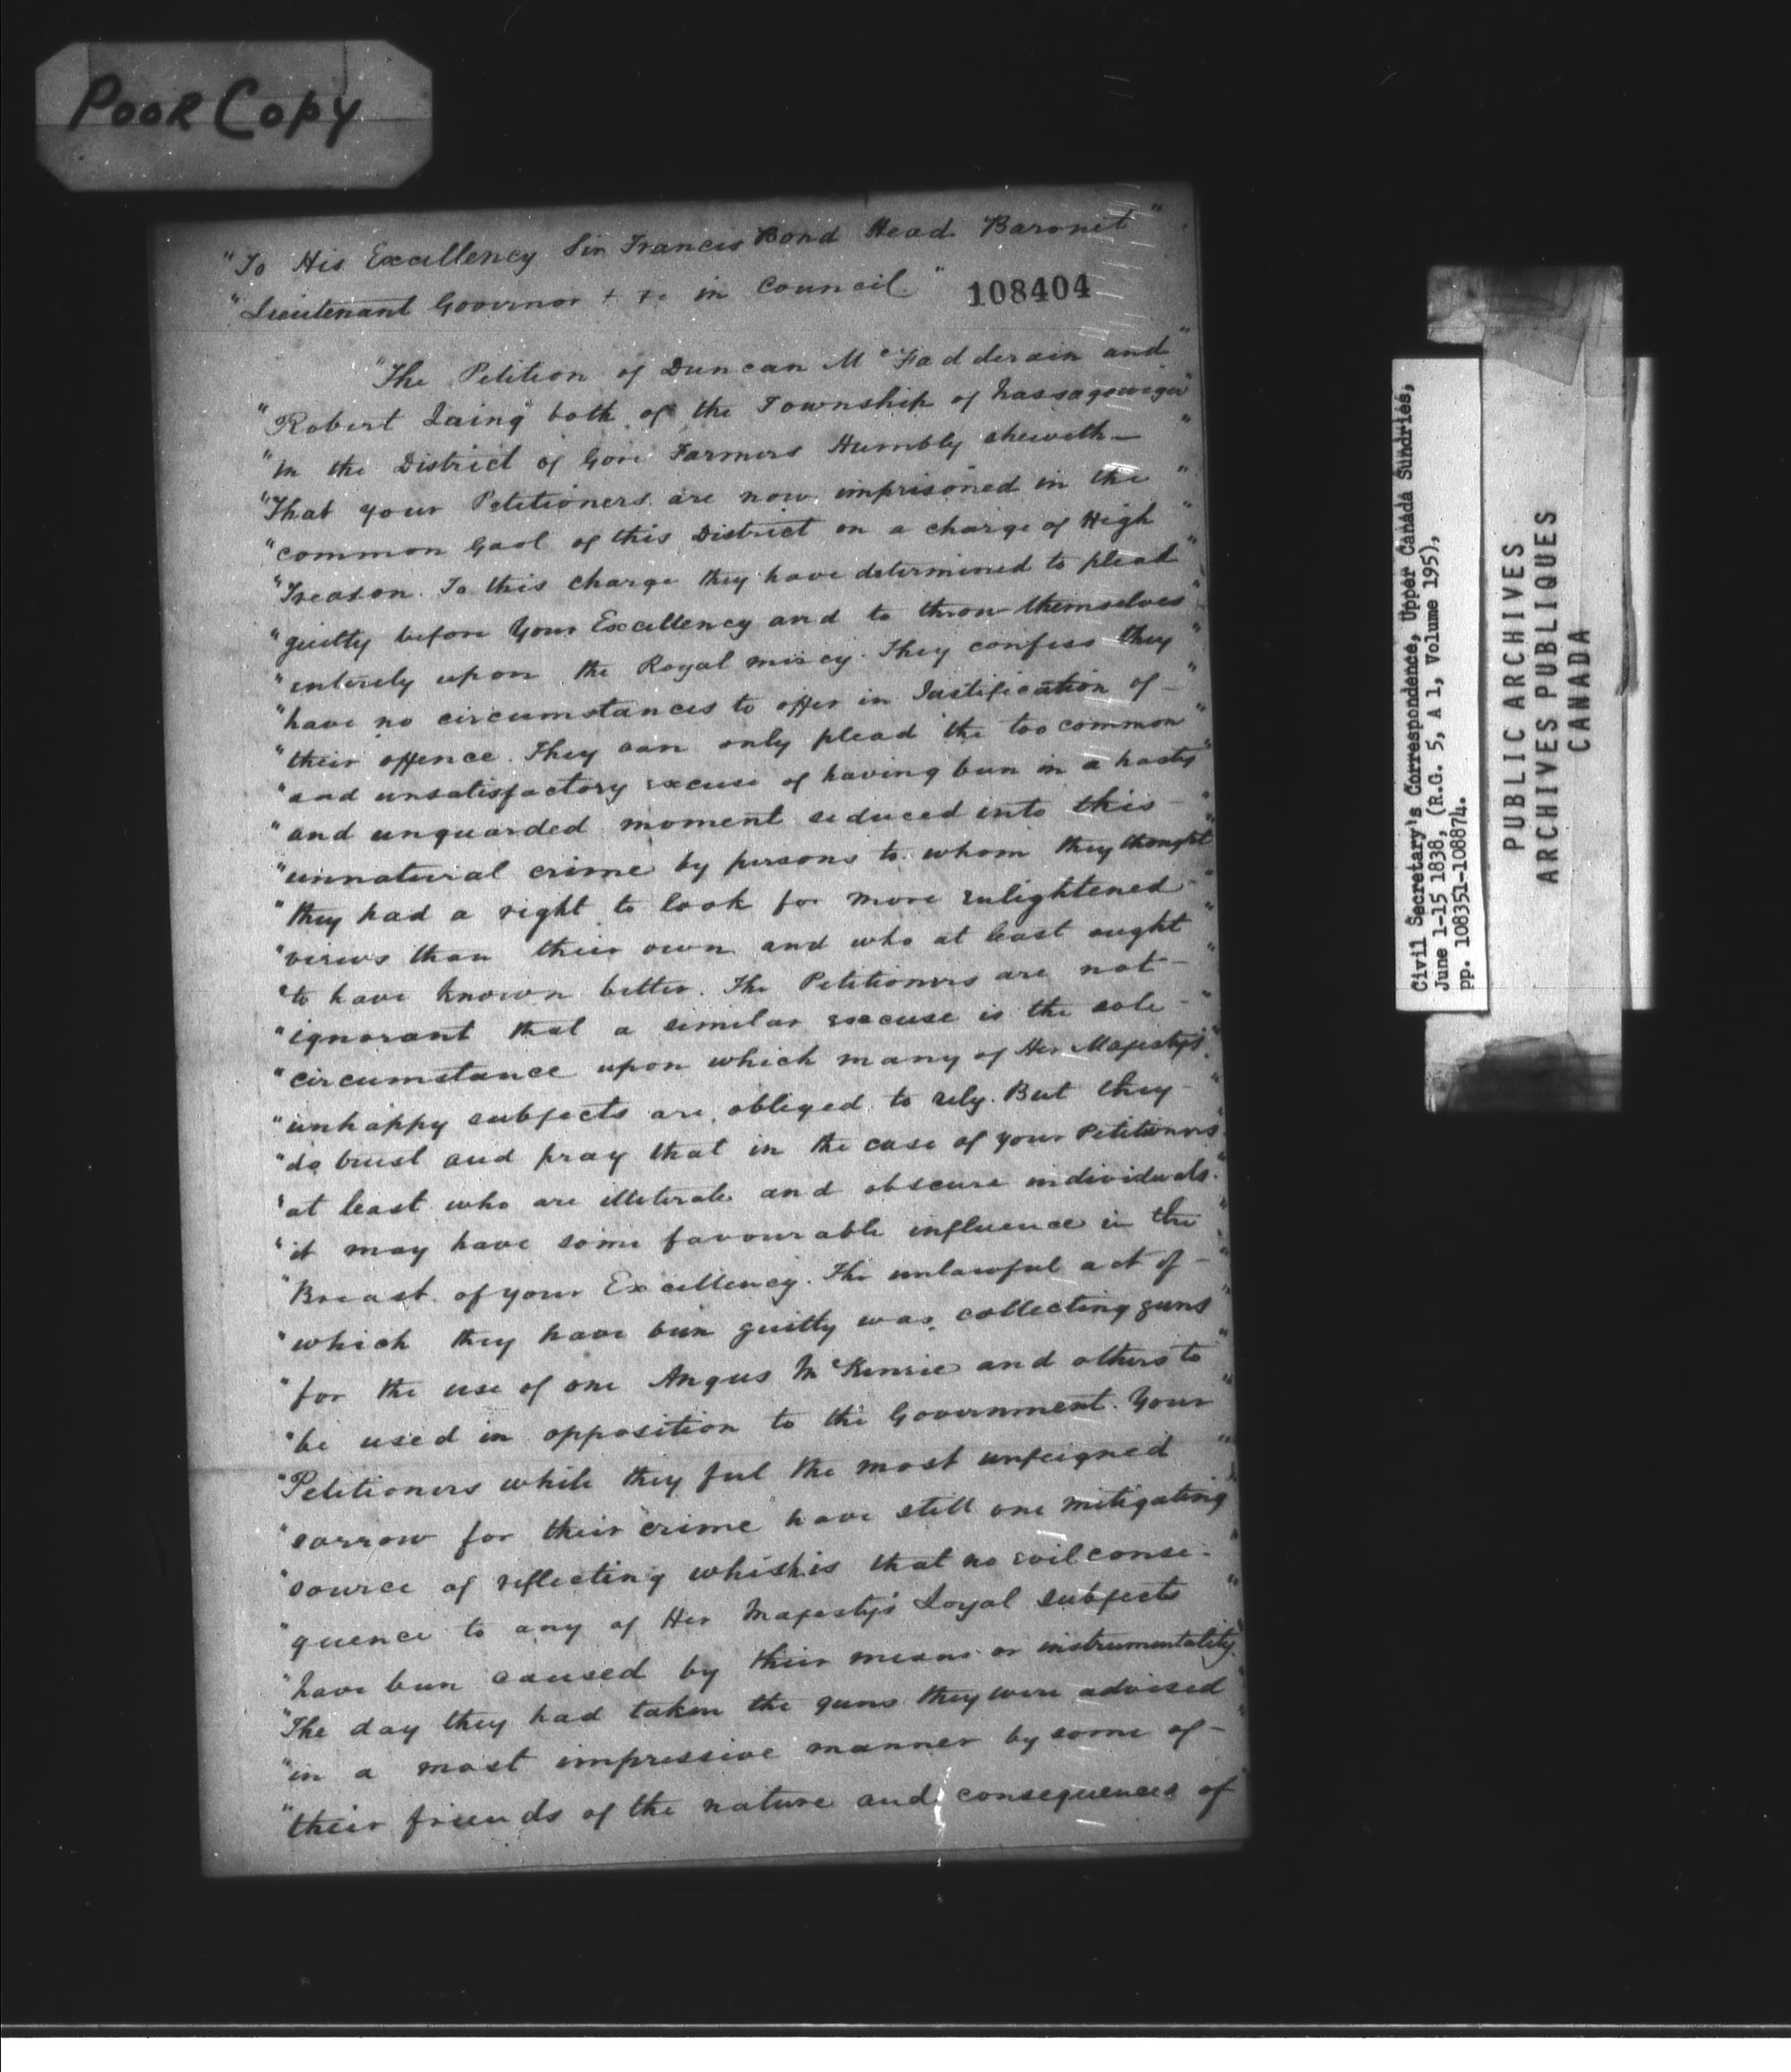 Poor Copy
"To His Excellency Sir Francis Bond Head Baronet"
"Lieutenant Governor + +c in Council."
108404
"The Petition of Duncan McFadderain and"
"Robert Laing both of the Township of Nassagaweya"
"in the District of Gore Farmers Humbly sheweth—"
"That your Petitioners are now imprisoned in the"
"common Gaol of this District on a charge of High"
"Treason. To this charge they have determined to plead"
"guilty before Your Excellency and to throw themselves"
"entirely upon the Royal mercy. They confess they"
"have no circumstances to offer in Justification of—"
"their offence. They can only plead the too common"
"and unsatisfactory excuse of having been in a hasty"
"and unguarded moment seduced into this—"
"unnatural crime by persons to whom they thought"
"they had a right to look for more enlightened—"
"views than their own and who at least ought"
"to have known better. The Petitioners are not—"
"ignorant that a similar excuse is the sole—"
"circumstance upon which many of Her Majesty's"
"unhappy subjects are obliged to rely. But they—"
"do trust and pray that in the case of your Petitioners"
"at least who are illiterate and obscure individuals."
"it may have some favourable influence in the"
"Breast of your Excellency. The unlawful act of—"
"which they have been guilty was collecting guns"
"for the use of one Angus McKenzie and others to"
"be used in opposition to the Government. Your"
"Petitioners while they feel the most unfeigned"
"sorrow for their crime have still one mitigating
"source of reflecting which is that no evil conse-"
"quence to any of Her Majesty's Loyal subjects"
"have been caused by their means or instrumentality."
"The day they had taken the guns they were advised"
"in a most impressive manner by some of—"
"their friends of the nature and consequences of"
Civil Secretary's Correspondence, Upper Canada Sundries,
June 1-15 1838, (R.G. 5, A 1, Volume 195),
pp. 108351-108874.
PUBLIC ARCHIVES
ARCHIVES PUBLIQUES
CANADA